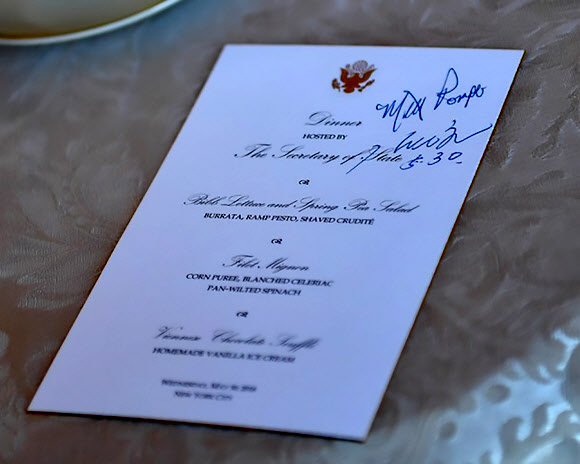 Dinner
HOSTED BY
The Secretary of State
Bibb Lettuce and Spring Pea Salad
BURRATA, RAMP PESTO, SHAVED CRUDITÉ
Filet Mignon
CORN PUREE, BLANCHED CELERIAC
PAN-WILTED SPINACH
Viennese Chocolate Soufflé
HOMEMADE VANILLA ICE CREAM
WEDNESDAY, MAY 30, 2018
NEW YORK CITY
5.30.